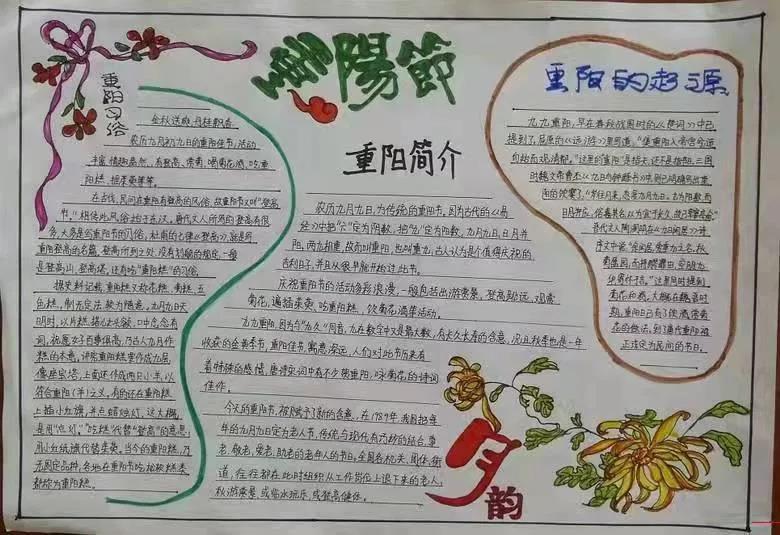 重陽節
重阳习俗
金秋送爽,丹桂飘香
农历九月初九日的重阳佳节,活动
丰富,情趣盎然,有登高、赏菊、喝菊花酒、吃重
阳糕、插茱萸等等。
在古代,民间在重阳有登高的风俗,故重阳节又叫"登高
节"。相传此风俗始于东汉。唐代文人所写的登高诗很
多,大多是写重阳节的习俗,杜甫的七律《登高》,就是写
重阳登高的名篇。登高所到之处,没有划一的规定,一般
是登高山、登高塔,还有吃"重阳糕"的习俗。
据史料记载,重阳糕又称花糕、菊糕、五
色糕,制无定法,较为随意。九月九日天
明时,以片糕搭儿女头额,口中念念有
词,祝愿子女百事俱高,乃古人九月作
糕的本意。讲究重阳糕要作成九层,
像座宝塔,上面还作成两只小羊,以
符合重阳(羊)之义。有的还在重阳糕
上插小红旗,并点蜡烛灯。这大概
是用"点灯"、"吃糕"代替"登高"的意思,
用小红纸旗代替茱萸。当今的重阳糕,仍
无固定品种,各地在重阳节吃
都称为重阳糕。
重阳简介
农历九月九日,为传统的重阳节。因为古代的《易
经》中把"六"定为阴数,把"九"定为阳数,九月九日,日月并
阳,两九相重,故而叫重阳,也叫重九。古人认为是个值得庆贺的
吉利日子,并且从很早就开始过此节。
庆祝重阳节的活动多彩浪漫,一般包括出游赏景、登高远眺、观赏
菊花、遍插茱萸、吃重阳糕、饮菊花酒等活动。
九九重阳,因为与"久久"同音,九在数字中又是最大数,有长久长寿的含意,况且秋季也是一年
收获的金黄季节,重阳佳节,寓意深远,人们对此节历来有
着特殊的感情,唐诗宋词中有不少贺重阳,咏菊花的诗词
佳作。
今天的重阳节,被赋予了新的含意,在1989年,我国把每
年的九月九日定为老人节,传统与现代巧妙的结合,尊
老、敬老、爱老、助老的老年人的节日。全国各机关、团体、街
道,往往都在此时组织从工作岗位上退下来的老人,
秋游赏景,或临水玩乐,或登高健体。
重阳的起源
九九重阳,早在春秋战国时的《楚词》中已
提到了。屈原的《远游》里写道:"集重阳入帝宫兮造
旬始而观清都"。这里的"重阳"是指天,还不是指节日。三国
时魏文帝曹丕《九日与钟繇书》中,则已明确写出重
阳的饮宴了:"岁往月来,忽复九月九日。九为阳数,而
日月并应,俗嘉其名,以为宜于长久,故以享宴高会"。
晋代文人陶渊明在《九日闲居》诗
序文中说:"余闲居,爱重九之名。秋
菊盈园,而持醪靡由,空服九
华,寄怀于言。"这里同时提到
菊花和酒。大概在魏晋时
期,重阳日已有了饮酒、赏菊
花的做法。到了唐代重阳被
正式定为民间的节日。
九月
韵